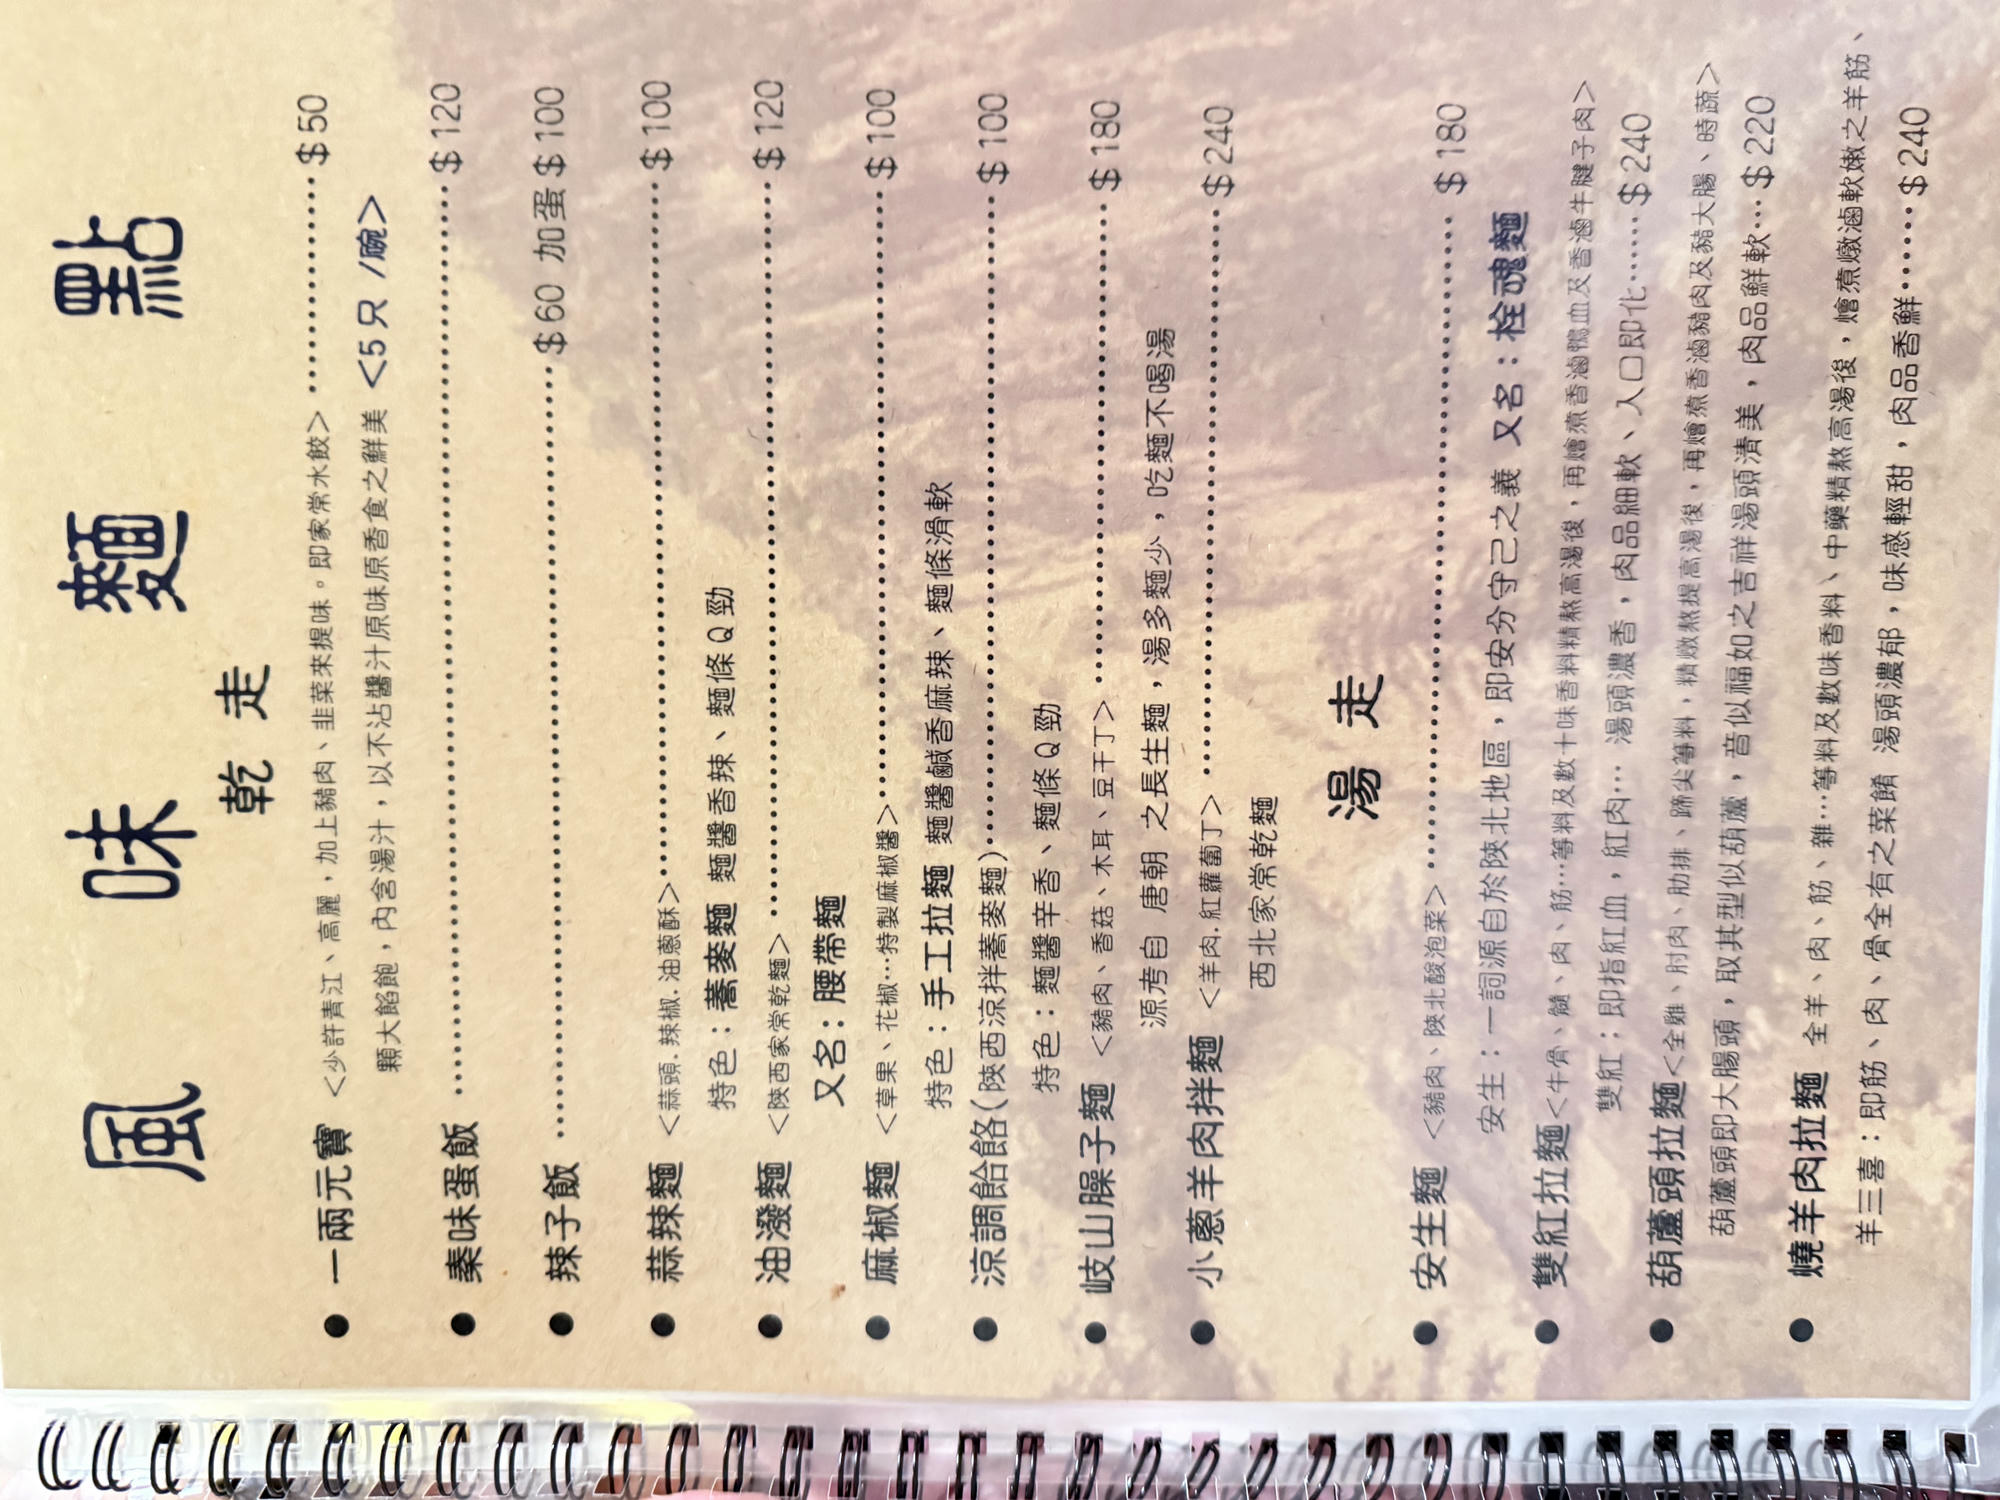 風味麵點
乾走
● 一兩元寶 <少許青江、高麗，加上豬肉、韭菜來提味。即家常水餃>⋯⋯⋯⋯⋯$50
顆大餡飽，內含湯汁，以不沾醬汁原味原香食之鮮美 <5只 /碗>
● 秦味蛋飯⋯⋯⋯⋯⋯⋯⋯⋯⋯⋯⋯⋯⋯⋯⋯⋯⋯⋯⋯⋯$120
● 辣子飯⋯⋯⋯⋯⋯⋯⋯⋯⋯⋯⋯⋯⋯⋯⋯⋯⋯⋯$60 加蛋$100
● 蒜辣麵 <蒜頭.辣椒.油蔥酥>⋯⋯⋯⋯⋯⋯⋯⋯⋯⋯⋯⋯⋯$100
特色：蕎麥麵 麵醬香辣、麵條Q勁
● 油潑麵 <陝西家常乾麵>⋯⋯⋯⋯⋯⋯⋯⋯⋯⋯⋯⋯⋯⋯$120
又名：腰帶麵
● 麻椒麵 <草果、花椒⋯特製麻椒醬>⋯⋯⋯⋯⋯⋯⋯⋯⋯⋯$100
特色：手工拉麵 麵醬鹹香麻辣、麵條滑軟
● 涼調餄餎(陝西涼拌蕎麥麵)⋯⋯⋯⋯⋯⋯⋯⋯⋯⋯⋯⋯$100
特色：麵醬辛香、麵條Q勁
● 岐山臊子麵 <豬肉、香菇、木耳、豆干丁>⋯⋯⋯⋯⋯⋯⋯⋯$180
源考自 唐朝 之長生麵，湯多麵少，吃麵不喝湯
● 小蔥羊肉拌麵 <羊肉.紅蘿蔔丁>⋯⋯⋯⋯⋯⋯⋯⋯⋯⋯$240
西北家常乾麵
湯走
● 安生麵 <豬肉、陝北酸泡菜>⋯⋯⋯⋯⋯⋯⋯⋯⋯⋯⋯⋯$180
安生：一詞源自於陝北地區，即安分守己之義 又名：栓魂麵
● 雙紅拉麵<牛骨、髓、肉、筋⋯等料及數十味香料精熬高湯後，再燴煮香滷鴨血及香滷牛腱子肉>
雙紅：即指紅血，紅肉⋯ 湯頭濃香，肉品細軟、入口即化⋯⋯$240
● 葫蘆頭拉麵<全雞、肘肉、肋排、蹄尖等料，精燉熬提高湯後，再燴煮香滷豬肉及豬大腸、時蔬>
葫蘆頭即大腸頭，取其型似葫蘆，音似福如之吉祥湯頭清美，肉品鮮軟⋯$220
● 燒羊肉拉麵 全羊、肉、筋、雜⋯等料及數味香料、中藥精熬高湯後，燴煮燉滷軟嫩之羊筋、
羊三喜：即筋、肉、骨全有之菜餚 湯頭濃郁，味感輕甜，肉品香鮮⋯⋯$240